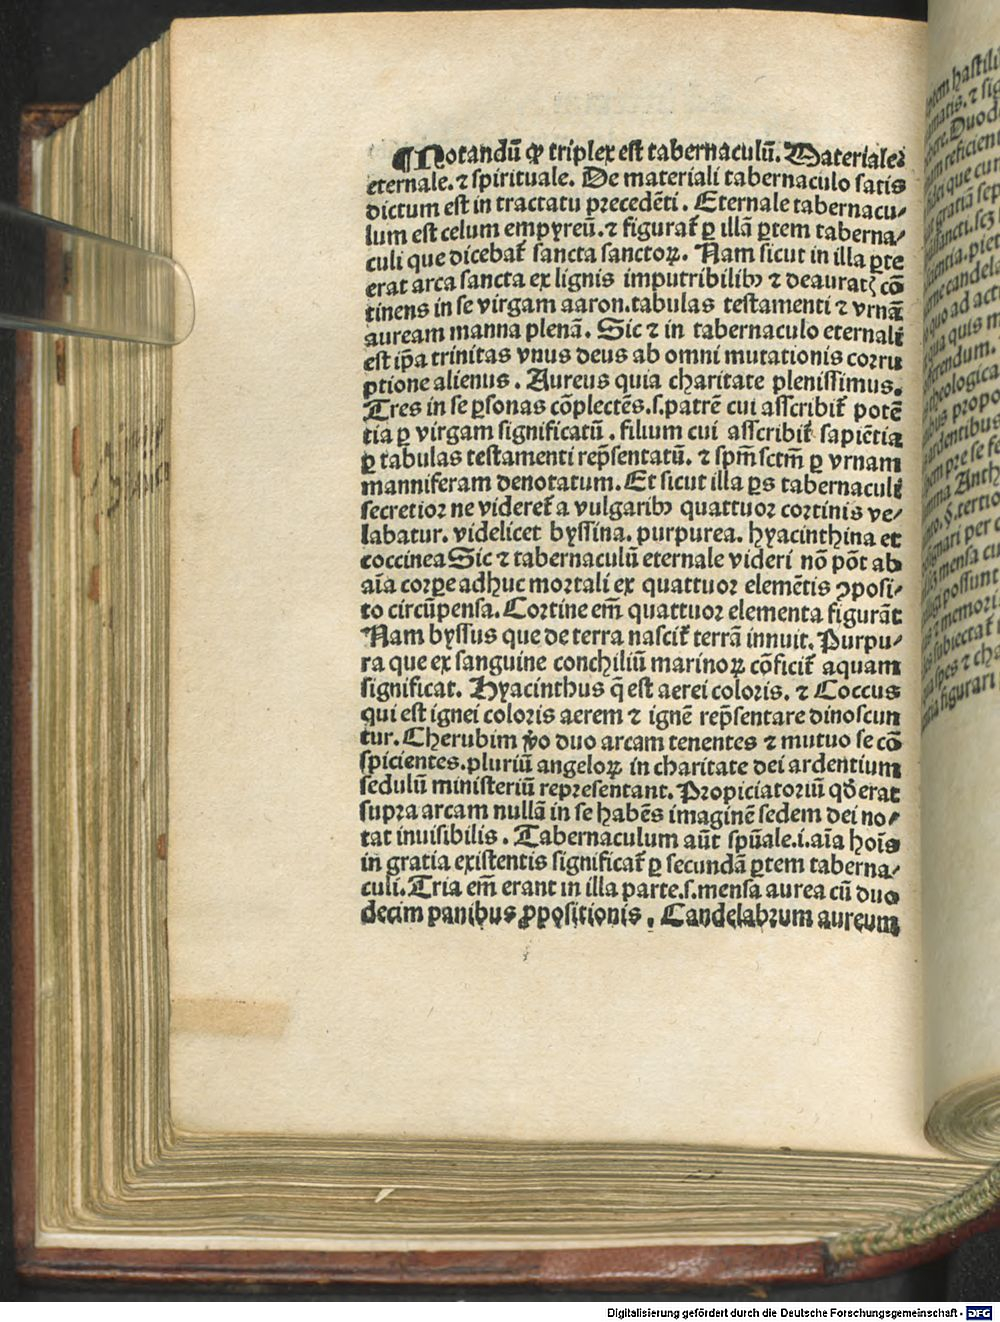 ¶Notandū ꝙ triplex est tabernaculū. Materiale:
eternale. ⁊ spirituale. De materiali tabernaculo satis
dictum est in tractatu precedēti. Eternale tabernacu/
lum est celum empyreū. ⁊ figurat̄ ꝑ illā ꝑtem taberna/
culi que dicebat̄ sancta sanctoꝝ. Nam sicut in illa ꝑte
erat arca sancta ex lignis imputribilibꝰ ⁊ deauratꝭ cō
tinens in se virgam aaron. tabulas testamenti ⁊ vrnā
auream manna plenā. Sic ⁊ in tabernaculo eternali
est ip̄a trinitas vnus deus ab omni mutationis corru
ptione alienus. Aureus quia charitate plenissimus.
Tres in se ꝑsonas cōplectēs. s. patrē cui asscribit̄ potē
tia ꝑ virgam significatū. filium cui asscribit̄ sapiētia
ꝑ tabulas testamenti rep̄sentatū. ⁊ sp̄m sctm̄ ꝑ vrnam
manniferam denotatum. Et sicut illa ꝑs tabernaculi
secretior ne videret̄ a vulgaribꝰ quattuor cortinis ve/
labatur. videlicet byssina. purpurea. hyacinthina et
coccinea Sic ⁊ tabernaculū eternale videri nō pōt ab
aīa corꝑe adhuc mortali ex quattuor elemētis ꝯposi/
to circūpensa. Cortine em̄ quattuor elementa figurāt
Nam byssus que de terra nascit̄ terrā innuit. Purpu/
ra que ex sanguine conchiliū marinoꝝ cōficit̄ aquam
significat. Hyacinthus q̄ est aerei coloris. ⁊ Coccus
qui est ignei coloris aerem ⁊ ignē rep̄sentare dinoscun
tur. Cherubim v̄o duo arcam tenentes ⁊ mutuo se cō
spicientes. pluriū angeloꝝ in charitate dei ardentium
sedulū ministeriū representant. Propiciatoriū qd̄ erat
supra arcam nullā in se habēs imaginē sedem dei no/
tat inuisibilis. Tabernaculum aūt spūale. i. aīa hoīs
in gratia existentis significat̄ ꝑ secundā ꝑtem taberna/
culi. Tria em̄ erant in illa parte. s. mensa aurea cū duo
decim panibus ꝓpositionis. Candelabrum aureum
Digitalisierung gefördert durch die Deutsche Forschungsgemeinschaft - DFG